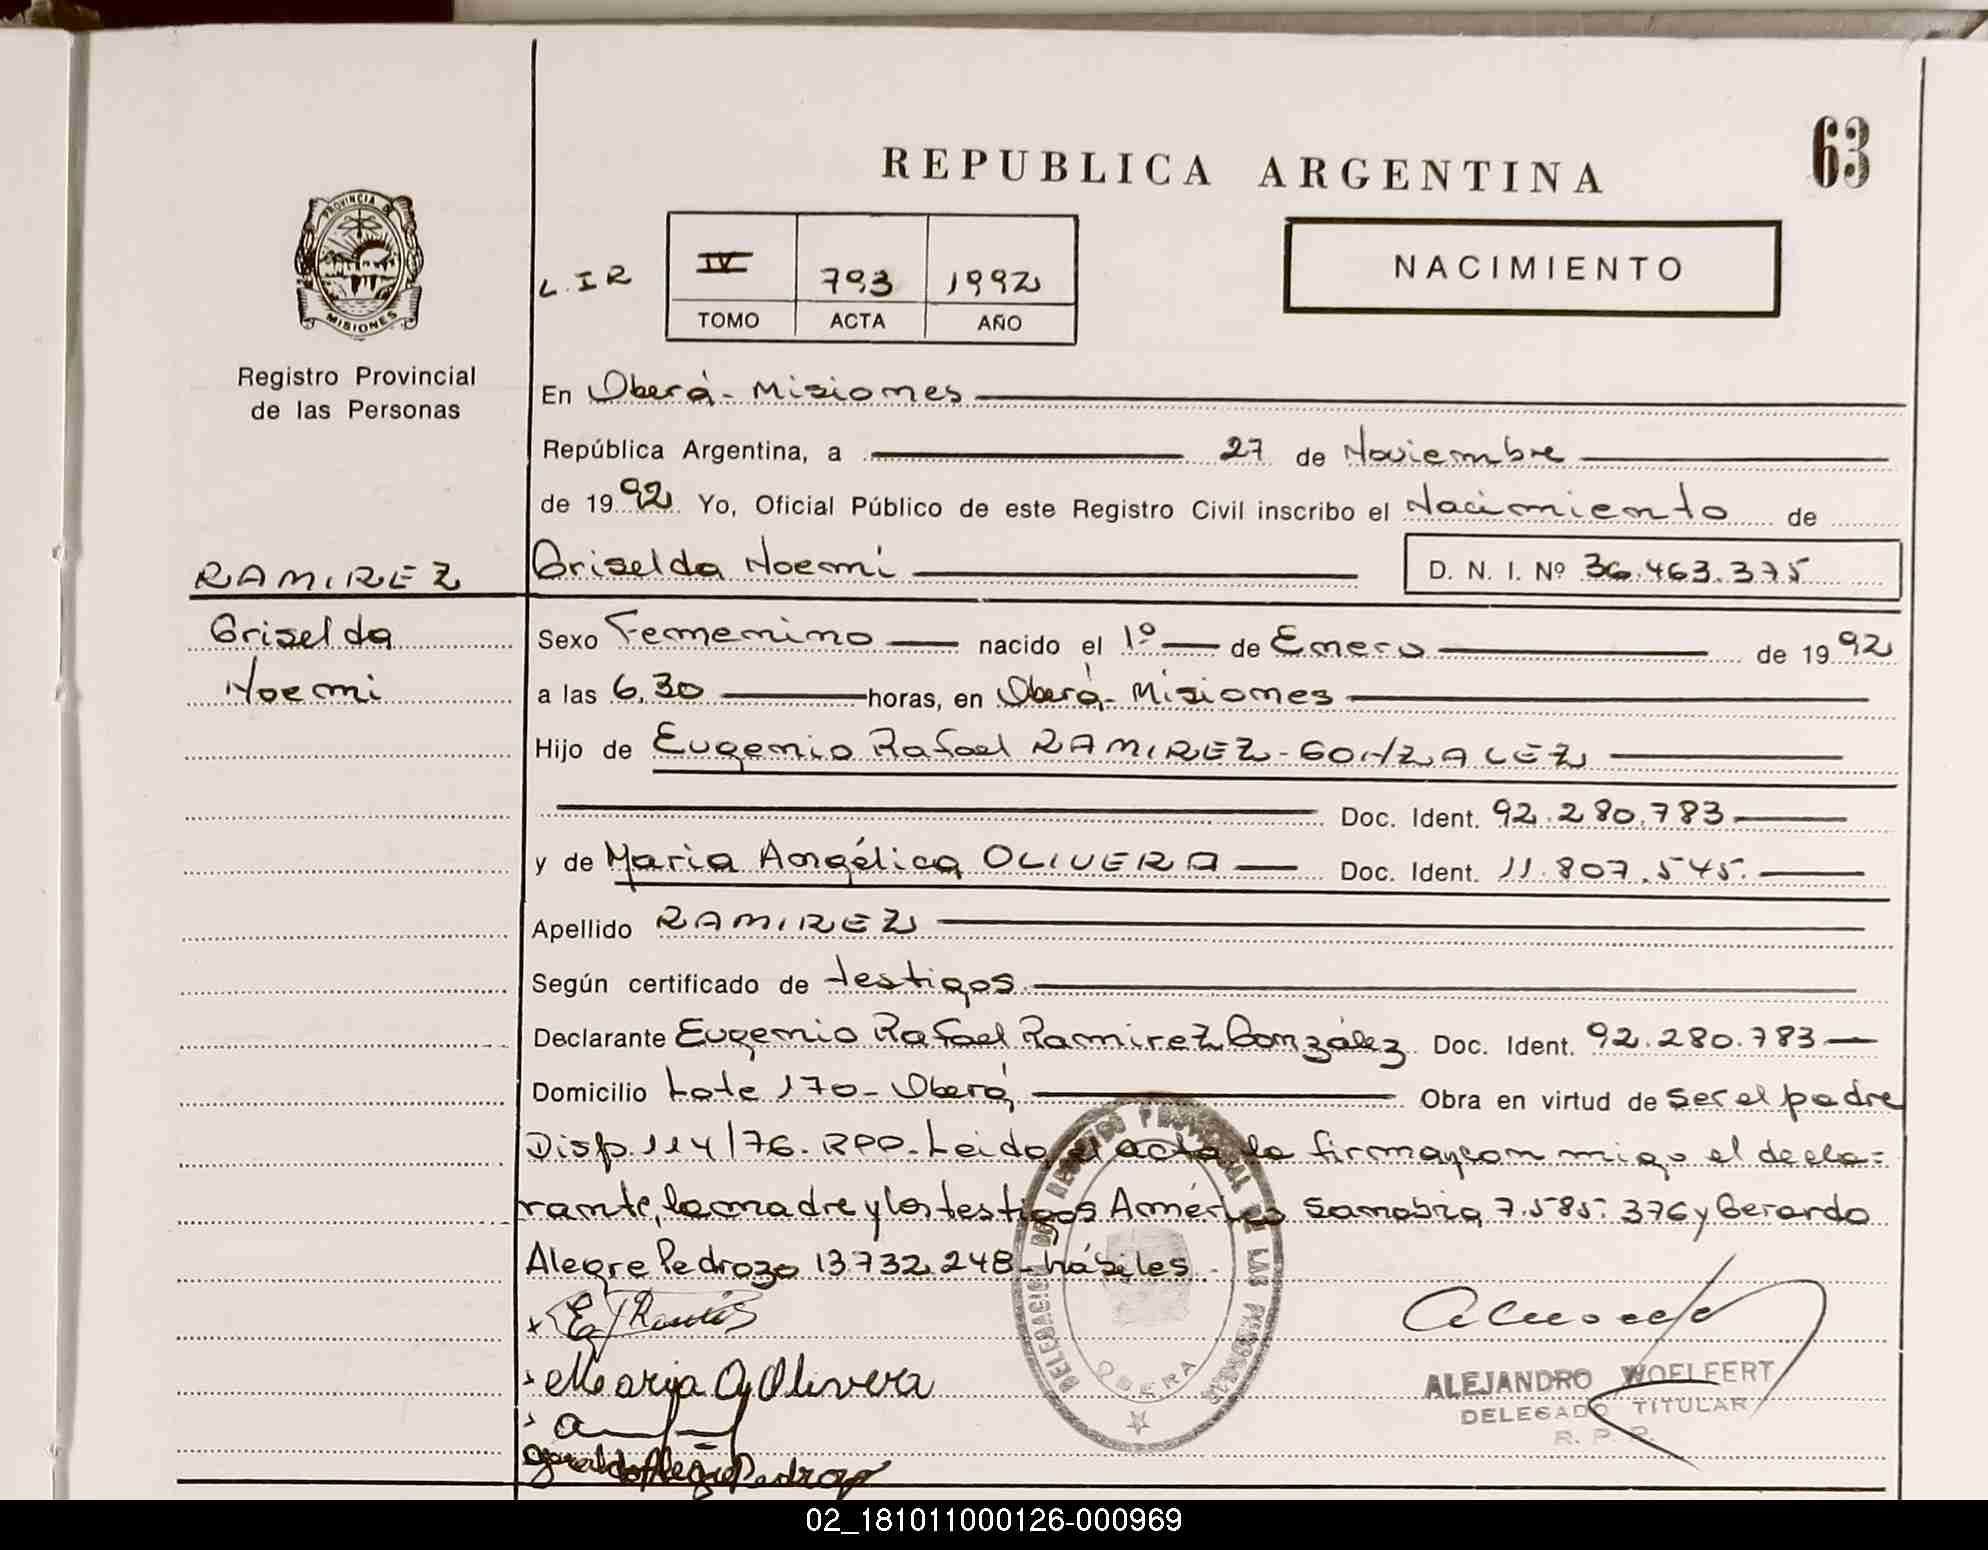 63
REPUBLICA ARGENTINA
PROVINCIA DE
MISIONES
Registro Provincial
de las Personas
L.I.R
IV 793 1992
TOMO ACTA AÑO
NACIMIENTO
En Oberá - Misiones
República Argentina, a 27 de Noviembre
de 1992 Yo, Oficial Público de este Registro Civil inscribo el Nacimiento de
RAMIREZ Griselda Noemi D. N. I. Nº 36.463.375
Griselda Sexo Femenino nacido el 1º de Enero de 1992
Noemi a las 6,30 horas, en Oberá - Misiones
Hijo de Eugenio Rafael RAMIREZ - GONZALEZ
Doc. Ident. 92.280.783
y de Maria Angélica OLIVERA Doc. Ident. 11.807.545.
Apellido RAMIREZ
Según certificado de testigos
Declarante Eugenio Rafael Ramirez González Doc. Ident. 92.280.783
Domicilio Lote 170 - Oberá Obra en virtud de ser el padre
Disp. 114/76. RPP. Leida el acta la firma y con migo el decla=
rante, la madre y los testigos Américo Sanabria 7.585.376 y Gerardo
Alegre Pedrozo 13732.248 - hábiles.
x E. Ramirez
Maria A Olivera
Gerardo Alegre Pedrozo
DELEGACION DEL REGISTRO PROVINCIAL DE LAS PERSONAS
OBERA
ALEJANDRO WOELFERT
DELEGADO TITULAR
R. P. P.
02_181011000126-000969